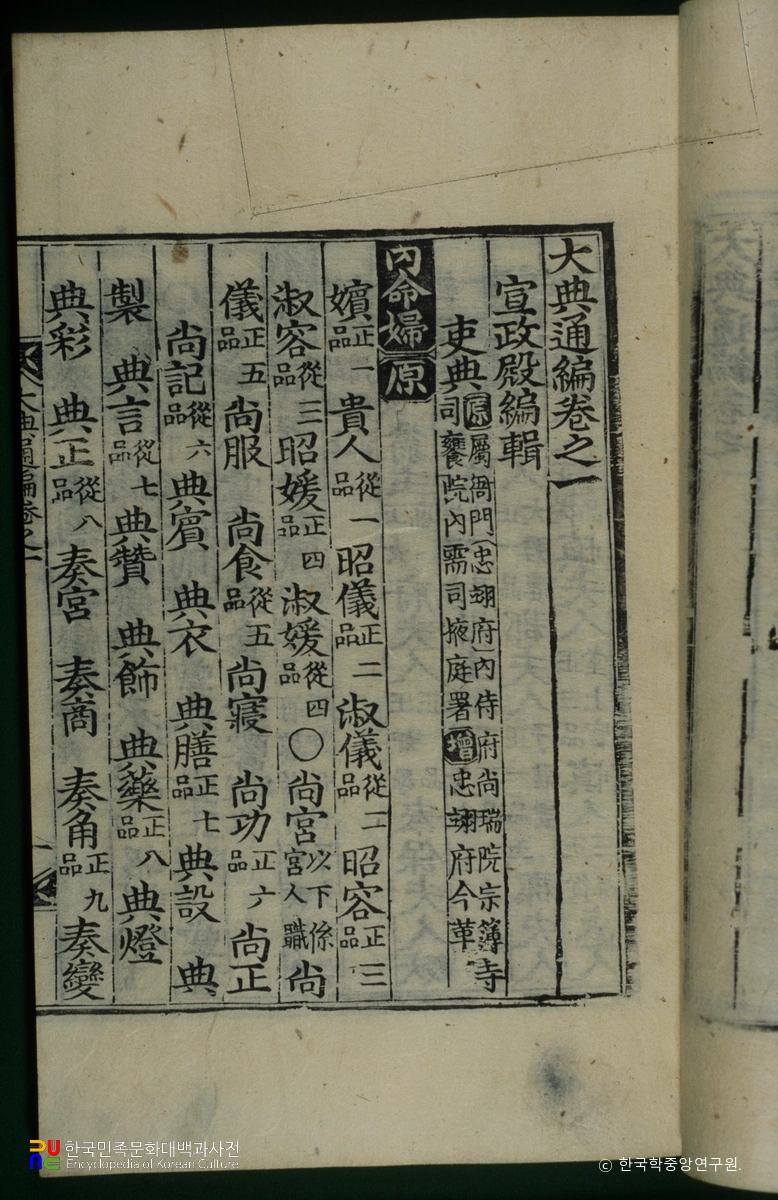 大典通編卷之一
宣政殿編輯
吏典 原 屬衙門 忠翊府 內侍府 尙瑞院 宗簿寺
司饔院 內需司 掖庭署 增 忠翊府今革
內命婦 原
嬪 正一品 貴人 從一品 昭儀 正二品 淑儀 從二品 昭容 正三品
淑容 從三品 昭媛 正四品 淑媛 從四品 ○ 尙宮 以下係宮人職 尙
儀 正五品 尙服 尙食 從五品 尙寢 尙功 正六品 尙正
尙記 從六品 典賓 典衣 典膳 正七品 典設 典
製 典言 從七品 典贊 典飾 典藥 正八品 典燈
典彩 典正 從八品 奏宮 奏商 奏角 正九品 奏變
大典通編卷之一
한국민족문화대백과사전
Encyclopedia of Korean Culture
ⓒ 한국학중앙연구원.